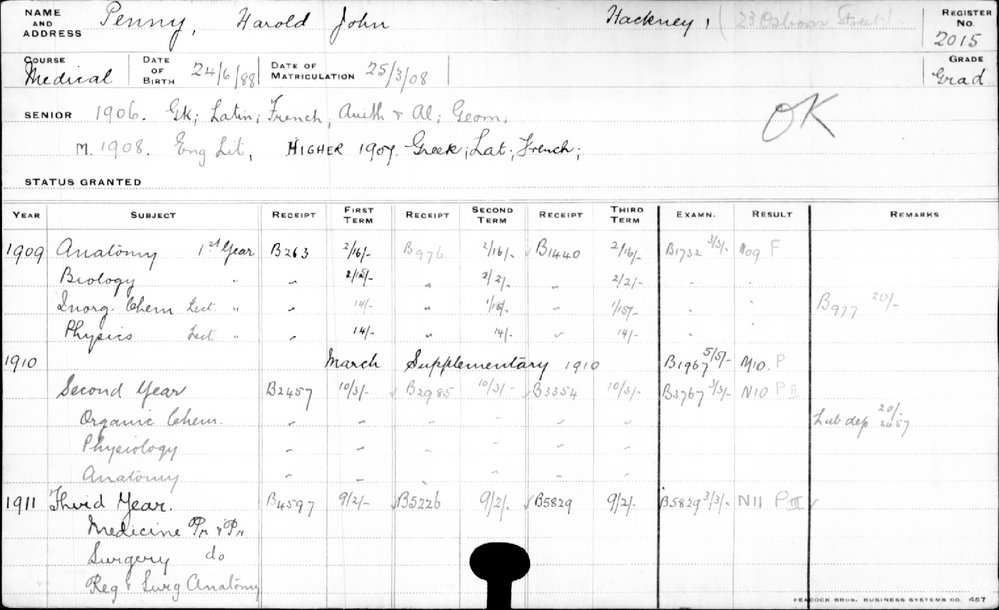 NAME AND ADDRESS Penny, Harold John Hackney, (23 Osborn Street) REGISTER No. 2015
COURSE Medical DATE OF BIRTH 24/6/88 DATE OF MATRICULATION 25/3/08 GRADE Grad
SENIOR 1906. Gk; Latin; French, Arith & Al; Geom. OK
M. 1908. Eng Lit, HIGHER 1907. Greek; Lat; French;
STATUS GRANTED
YEAR SUBJECT RECEIPT FIRST TERM RECEIPT SECOND TERM RECEIPT THIRD TERM EXAMN. RESULT REMARKS
1909 Anatomy 1st Year B263 2/16/- B976 2/16/- B1440 2/16/- B1732 3/3/- N09 F
Biology " " 2/2/- " 2/2/- " 2/2/- " "
Inorg. Chem Lect. " " 14/- " 1/15/- " 1/15/- " " B977 20/-
Physics Lect. " " 14/- " 14/- " 14/- " "
1910 March Supplementary 1910 B1967 5/5/- M10 P
Second Year B2457 10/3/- B2985 10/3/- B3354 10/3/- B3767 3/3/- N10 P II
Organic Chem. " " " " " " Lab dep 20/- 2457
Physiology " " " " " "
Anatomy " " " " " "
1911 Thrid Year. B4597 9/2/- B5226 9/2/- B5829 9/2/- B5829 3/3/- N11 P III
Medicine Pr & Pr
Surgery do
Reg & Surg Anatomy
PEACOCK BROS. BUSINESS SYSTEMS CO. 457